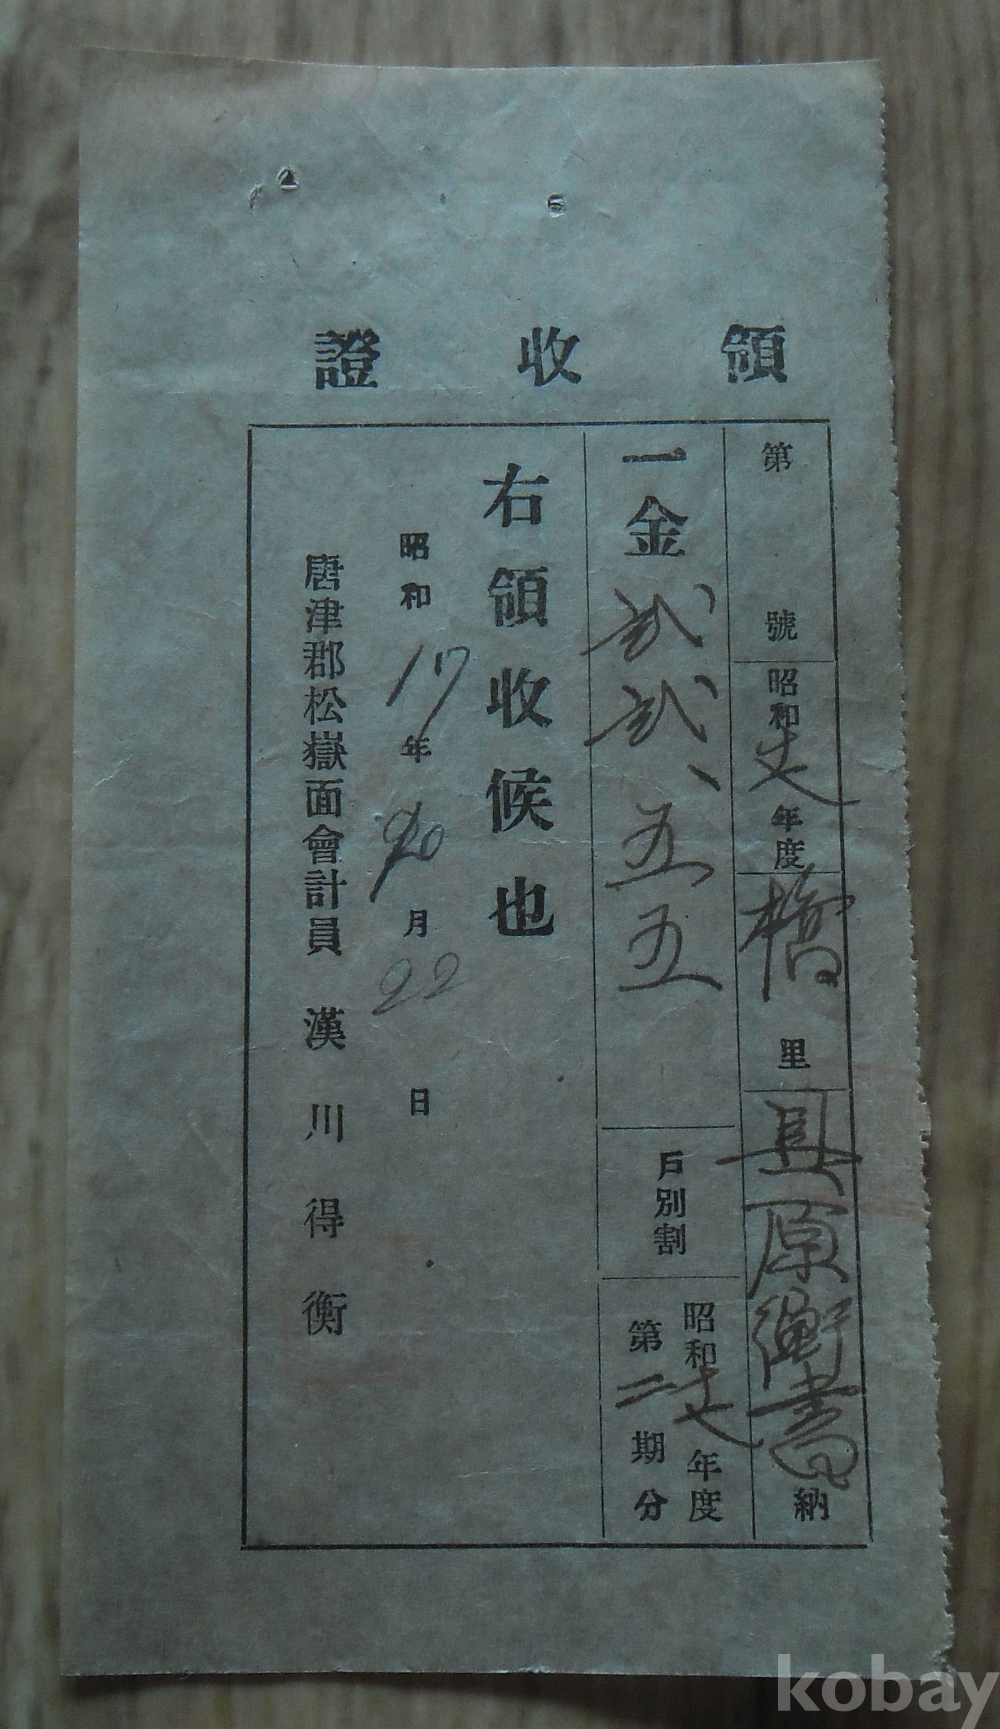 領收證
第號
昭和十七年度
橋里
具原衡書納
一金弐弐、五五
戶別割
昭和十七年度
第二期分
右領收候也
昭和17年10月22日
唐津郡松嶽面會計員 漢川得衡
kobay